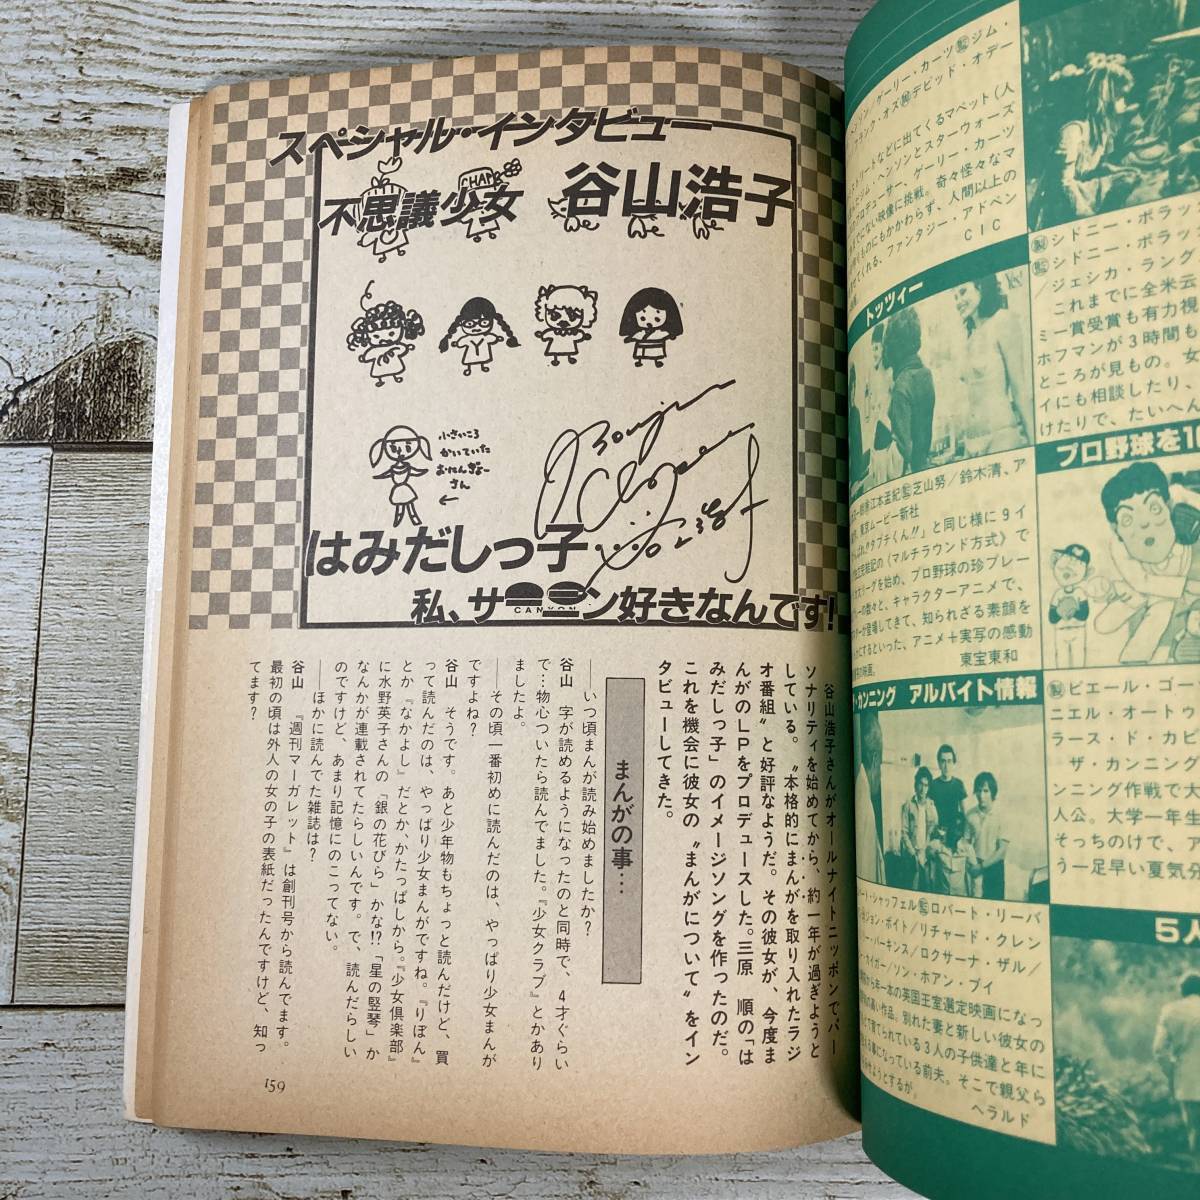 スペシャル・インタビュー
不思議少女 谷山浩子
CHAPS
小さいころ
かいていた
おねんぎょー
さん
Bonjour
はみだしっ子
私、サーニン好きなんです!
CANYON
谷山浩子さんがオールナイトニッポンでパー
ソナリティを始めてから、約一年が過ぎようと
している。〝本格的にまんがを取り入れたラジ
オ番組〟と好評なようだ。その彼女が、今度ま
んがのLPをプロデュースした。三原 順の「は
みだしっ子」のイメージソングを作ったのだ。
これを機会に彼女の〝まんがについて〟をイン
タビューしてきた。
まんがの事…
——いつ頃まんが読み始めましたか?
谷山 字が読めるようになったのと同時で、4才ぐらい
で…物心ついたら読んでました。『少女クラブ』とかあり
ましたよ。
——その頃一番初めに読んだのは、やっぱり少女まんが
ですよね?
谷山 そうです。あと少年物もちょっと読んだけど、買
って読んだのは、やっぱり少女まんがですね。『りぼん』
とか『なかよし』だとか、かたっぱしから。『少女倶楽部』
に水野英子さんの「銀の花びら」かな!?「星の竪琴」か
なんかが連載されてたらしいんです。で、読んだらしい
のですけど、あまり記憶にのこってない。
——ほかに読んでた雑誌は?
谷山 『週刊マーガレット』は創刊号から読んでます。
最初の頃は外人の女の子の表紙だったんですけど、知っ
てます?
159
ンソン/ゲーリー・カーツ㊩ジム・
フランク・オズ㊙デビッド・オデー
ストリートなどに出てくるマペット(人
したジム・ヘンソンとスターウォーズ
プロデューサー、ゲーリー・カーツ
までにない映像に挑戦。奇々怪々なマ
りものにもかかわらず、人間以上の
せてくれる、ファンタジー・アドベン
CIC
トッツィー
㊢シドニー・ポラッ
㊩シドニー・ポラッ
/ジェシカ・ラング
これまでに全米云
ミー賞受賞も有力視
ホフマンが3時間も
ところが見もの。女
イにも相談したり、
けたりで、たいへん
プロ野球を10
江本孟紀㊩芝山努/鈴木清、ア
東京ムービー新社
んばれ!!タブチくん!!」と同じ様に9イ
記の《マルチラウンド方式》で
大リーグを始め、プロ野球の珍プレー
ーの数々と、キャラクターアニメで、
ーが登場してきて、知られざる素顔を
にするといった、アニメ+実写の感動
の映画。
東宝東和
カンニング アルバイト情報
㊢ピエール・ゴー
ニエル・オートゥ
ラース・ド・カピ
ザ・カンニング
ンニング作戦で大
人公。大学一年生
そっちのけで、ア
う一足早い夏気分
ート・シャッフェル㊩ロバート・リーバ
ジョン・ボイト/リチャード・クレン
ー・パーキンス/ロクサーナ・ザル/
・ライガー/ソン・ホアン・ブイ
から年一本の英国王室選定映画になっ
の高い作品。別れた妻と新しい彼女の
で育てられている3人の子供達と年に
事になっている前夫。そこで親父ら
せようとするが、
ヘラルド
5人